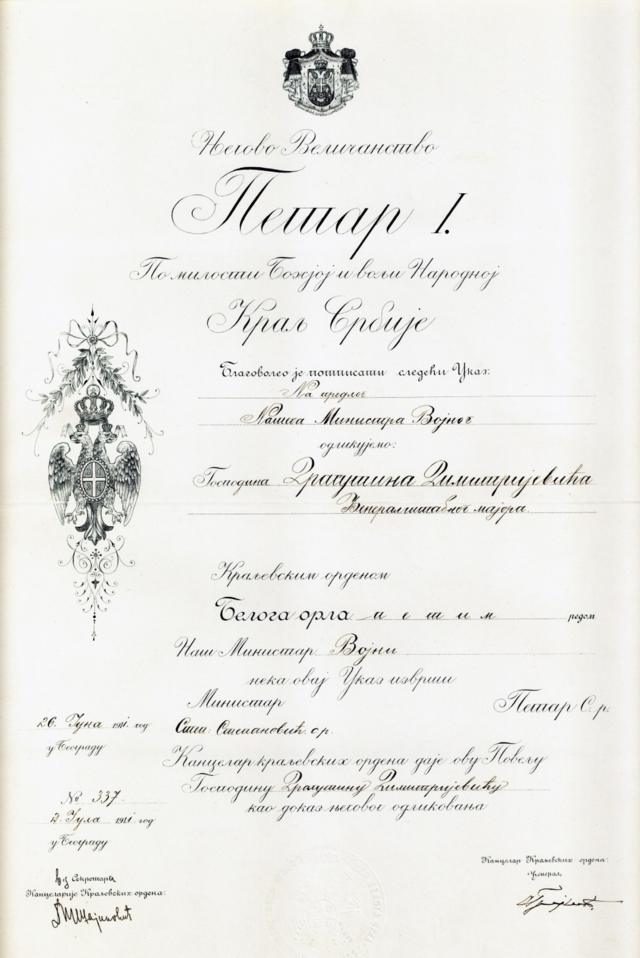 Његово Величанство
Петар I.
По милости Божјој и вољи Народној
Краљ Србије
Благоволео је потписати следећи Указ:
На предлог
Нашега Министра Војног
одликујемо:
Господина Драгутина Димитријевића
Ђенералштабног мајора
Краљевским орденом
Белога орла петим редом
Наш Министар Војни
нека овај Указ изврши
Министар Петар С. р.
26. Јуна 1911. год
у Београду
Степа Степановић с.р.
Канцелар краљевских ордена даје ову Повељу
Господину Драгутину Димитријевићу
као доказ његовог одликовања
№ 337
2. Јула 1911 год
у Београду
Секретар
Канцеларије Краљевских ордена:
Канцелар Краљевских ордена:
Ђенерал,